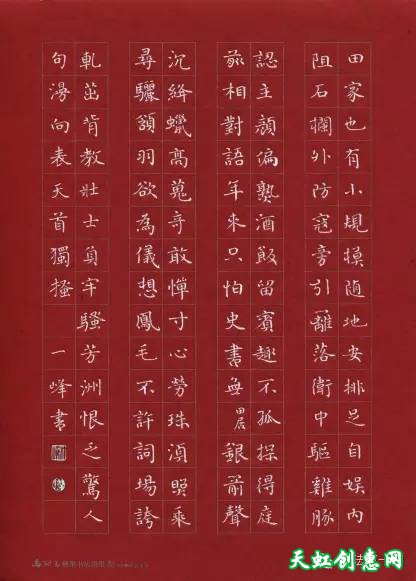 田家也有小規摸随地安排足自娱内
阻石欄外防寇旁引籬落衛中驅雞豚
認主顔偏熟酒飯留賓趣不孤探得庭
前相對語年來只怕史書無田居銀箭聲
沉絳蠟高蒐奇敢憚寸心勞珠湏照乗
尋驪頷羽欲為儀想鳳毛不許詞場誇
軋茁肯教壮士負牢騷芳洲恨乏驚人
句漫向表天首獨搔
一峰書
天虹创意网